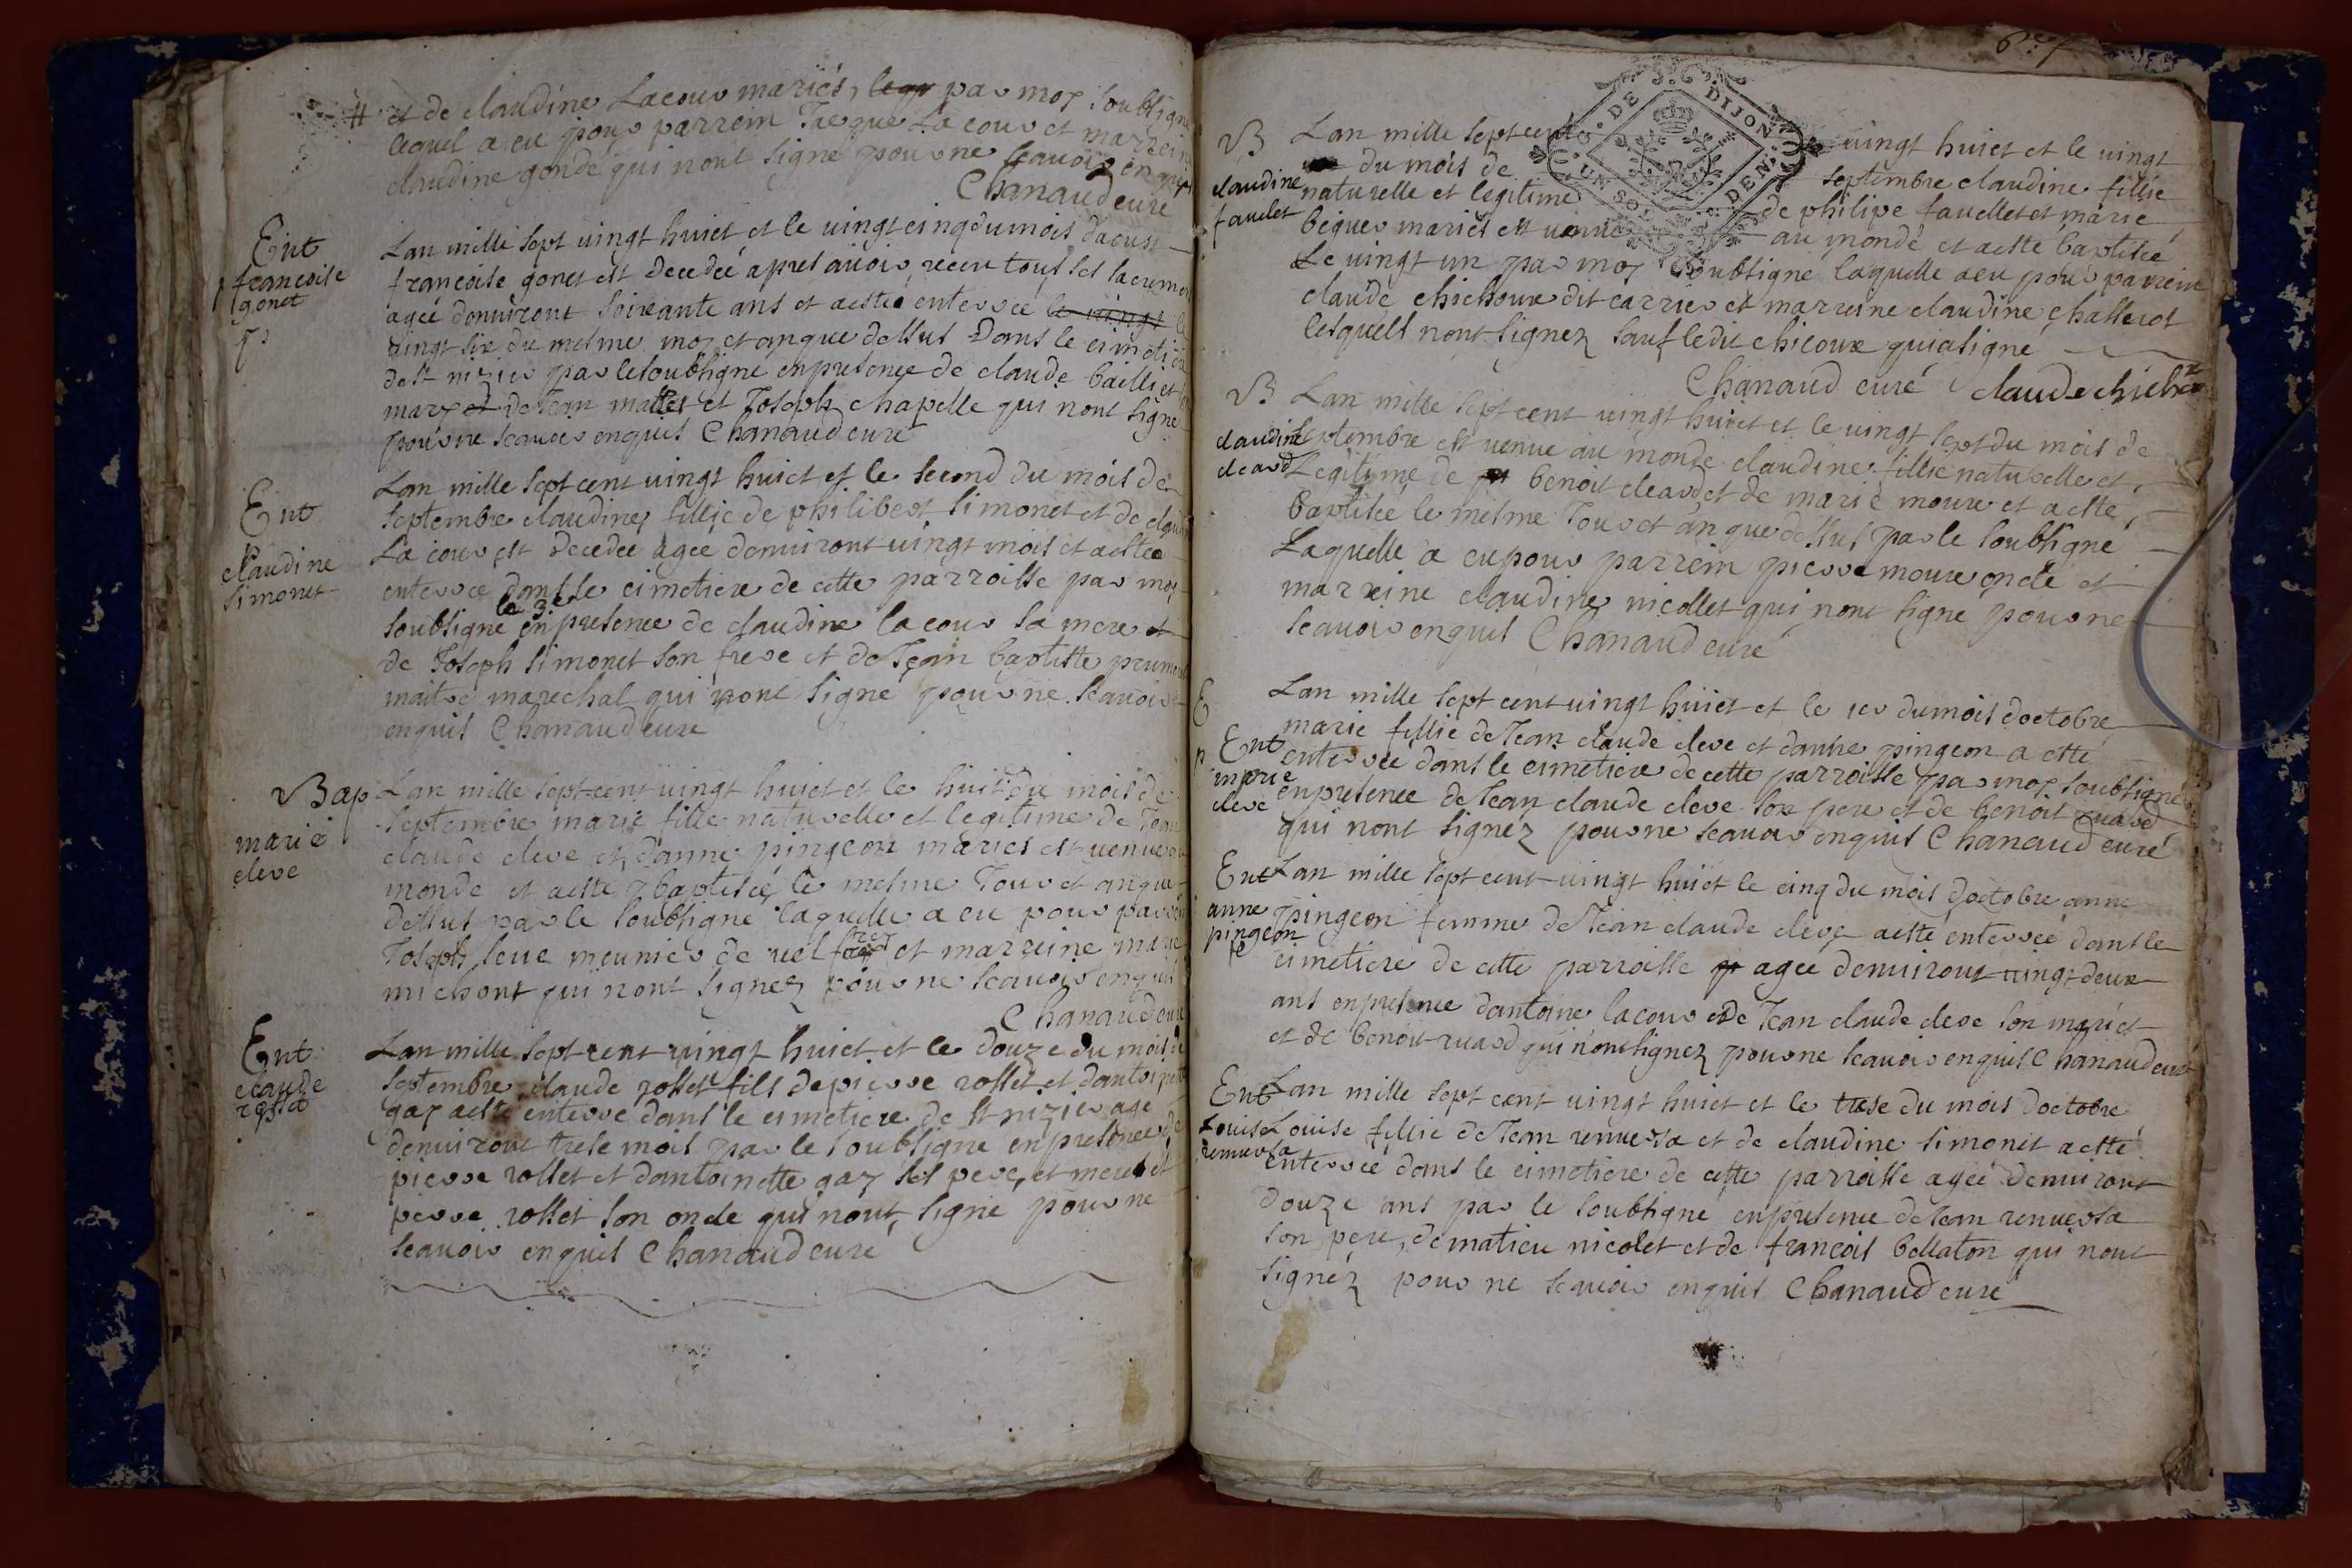 # et de claudine Lacour mariés, par moy soubsigné
lequel a eu pour parrein Jacque La cour et marreine
claudine gonde qui nont signé pour ne scavoir enquis
Chanaud curé
Ent
francoise
gonet
Lan mille sept vingt huict et le vingt cinq du mois daoust
francoise gonet est decedeé apres avoir receu tous ses sacremens
ageé denviront soixante ans et a esteé enterreé le vingt le
vingt six du mesme moy et an que dessus Dans le cimetiere
de st nizier par le soubsigné en presence de claude baillet son
mary et de Jean mattet et Joseph chapelle qui nont signé
pour ne scavoir enquis Chanaud curé
Ent
Claudine
simonet
Lan mille sept cent vingt huict et le second du mois de
septembre claudine fillie de philibert simonet et de claudine
La cour est decedeé ageé denviront vingt mois et a esteé
enterreé dans le cimetiere de cette parroisse par moy
soubsigné le 3e en presence de claudine lacour sa mere et
de Joseph simonet son frere et de Jean baptiste
maitre marechal qui nont signé pour ne scavoir
enquis Chanaud curé
Bap
marie
cleve
Lan mille sept cent vingt huict et le huit du mois de
septembre marie fille naturelle et legitime de Jean
claude cleve et danne pingeon mariés est venue au
monde et a esté baptiseé le mesme Jour et an que
dessus par le soubsigné laquelle a eu pour parrein
Joseph seue meunier de et marreine marie
michont qui nont signez pour ne scavoir enquis
Chanaud curé
Ent
claude
rosset
Lan mille sept cent vingt huict et le douze du mois de
septembre claude rosset fils de pierre rosset et dantoinette
gay a esté enterré dans le cimetiere de st nizier agé
denviront trese mois par le soubsigné en presence de
pierre rosset et dantoinette gay ses pere et mere et
pierre rosset son oncle qui nont signé pour ne
scavoir enquis Chanaud curé
G. DE DIJON
UN SOL DEN.
B
claudine
favelet
Lan mille sept cent vingt huict et le vingt
du mois de septembre claudine fillie
naturelle et legitime de philipe favellet et marie
beguer mariés est venue au monde et a esté baptiseé
Le vingt un par moy soubsigné laquelle a eu pour parrein
claude chichoux dit carrier et marreine claudine chasserot
lesquels nont signez sauf ledit chicoux qui a signé
Chanaud curé claude chichoux
B
claudine
cleard
Lan mille sept cent vingt huict et le vingt sept du mois de
septembre est venue au monde claudine fillie naturelle et
Legitime de benoit cleard et de marie moure et a esté
baptiseé le mesme Jour et an que dessus par le soubsigné
Laquelle a eu pour parrein pierre moure oncle et
marreine claudine nicollet qui nont signé pour ne
scavoir enquis Chanaud curé
E
Ent
marie
cleve
Lan mille sept cent vingt huict et le 1er du mois doctobre
marie fillie de Jean claude cleve et danne pingeon a esté
enterreé dans le cimetiere de cette parroisse par moy soubsigné
en presence de Jean claude cleve son pere et de benoit ruard
qui nont signéz pour ne scavoir enquis Chanaud curé
Ent
anne
pingeon
Lan mille sept cent vingt huict le cinq du mois doctobre anne
pingeon femme de Jean claude cleve a esté enterreé dans le
cimetiere de cette parroisse ageé denviront vingt deux
ans en presence dantoine lacour et de Jean claude cleve son mari et
et de benoit ruard qui nont signez pour ne scavoir enquis Chanaud curé
Ent
Louise
renversa
Lan mille sept cent vingt huict et le trese du mois doctobre
Louise fillie de Jean renversa et de claudine simonet a esté
enterreé dans le cimetiere de cette parroisse ageé denviront
Douze ans par le soubsigné en presence de Jean renversa
son pere, de matieu nicolet et de francois bellaton qui nont
signéz pour ne scavoir enquis Chanaud curé